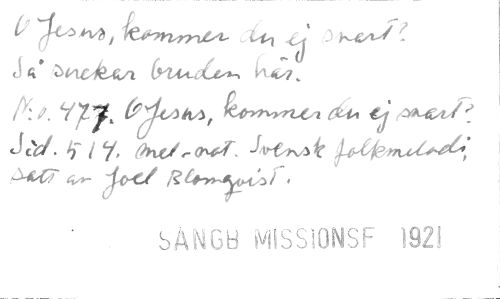 O Jesus, kommer du ej snart?
Så suckar bruden här.
N:o. 477. O Jesus, kommer du ej snart?
Sid. 514. mel.-not. Svensk folkmelodi,
sats av Joel Blomqvist.
SÅNGB MISSIONSF 1921